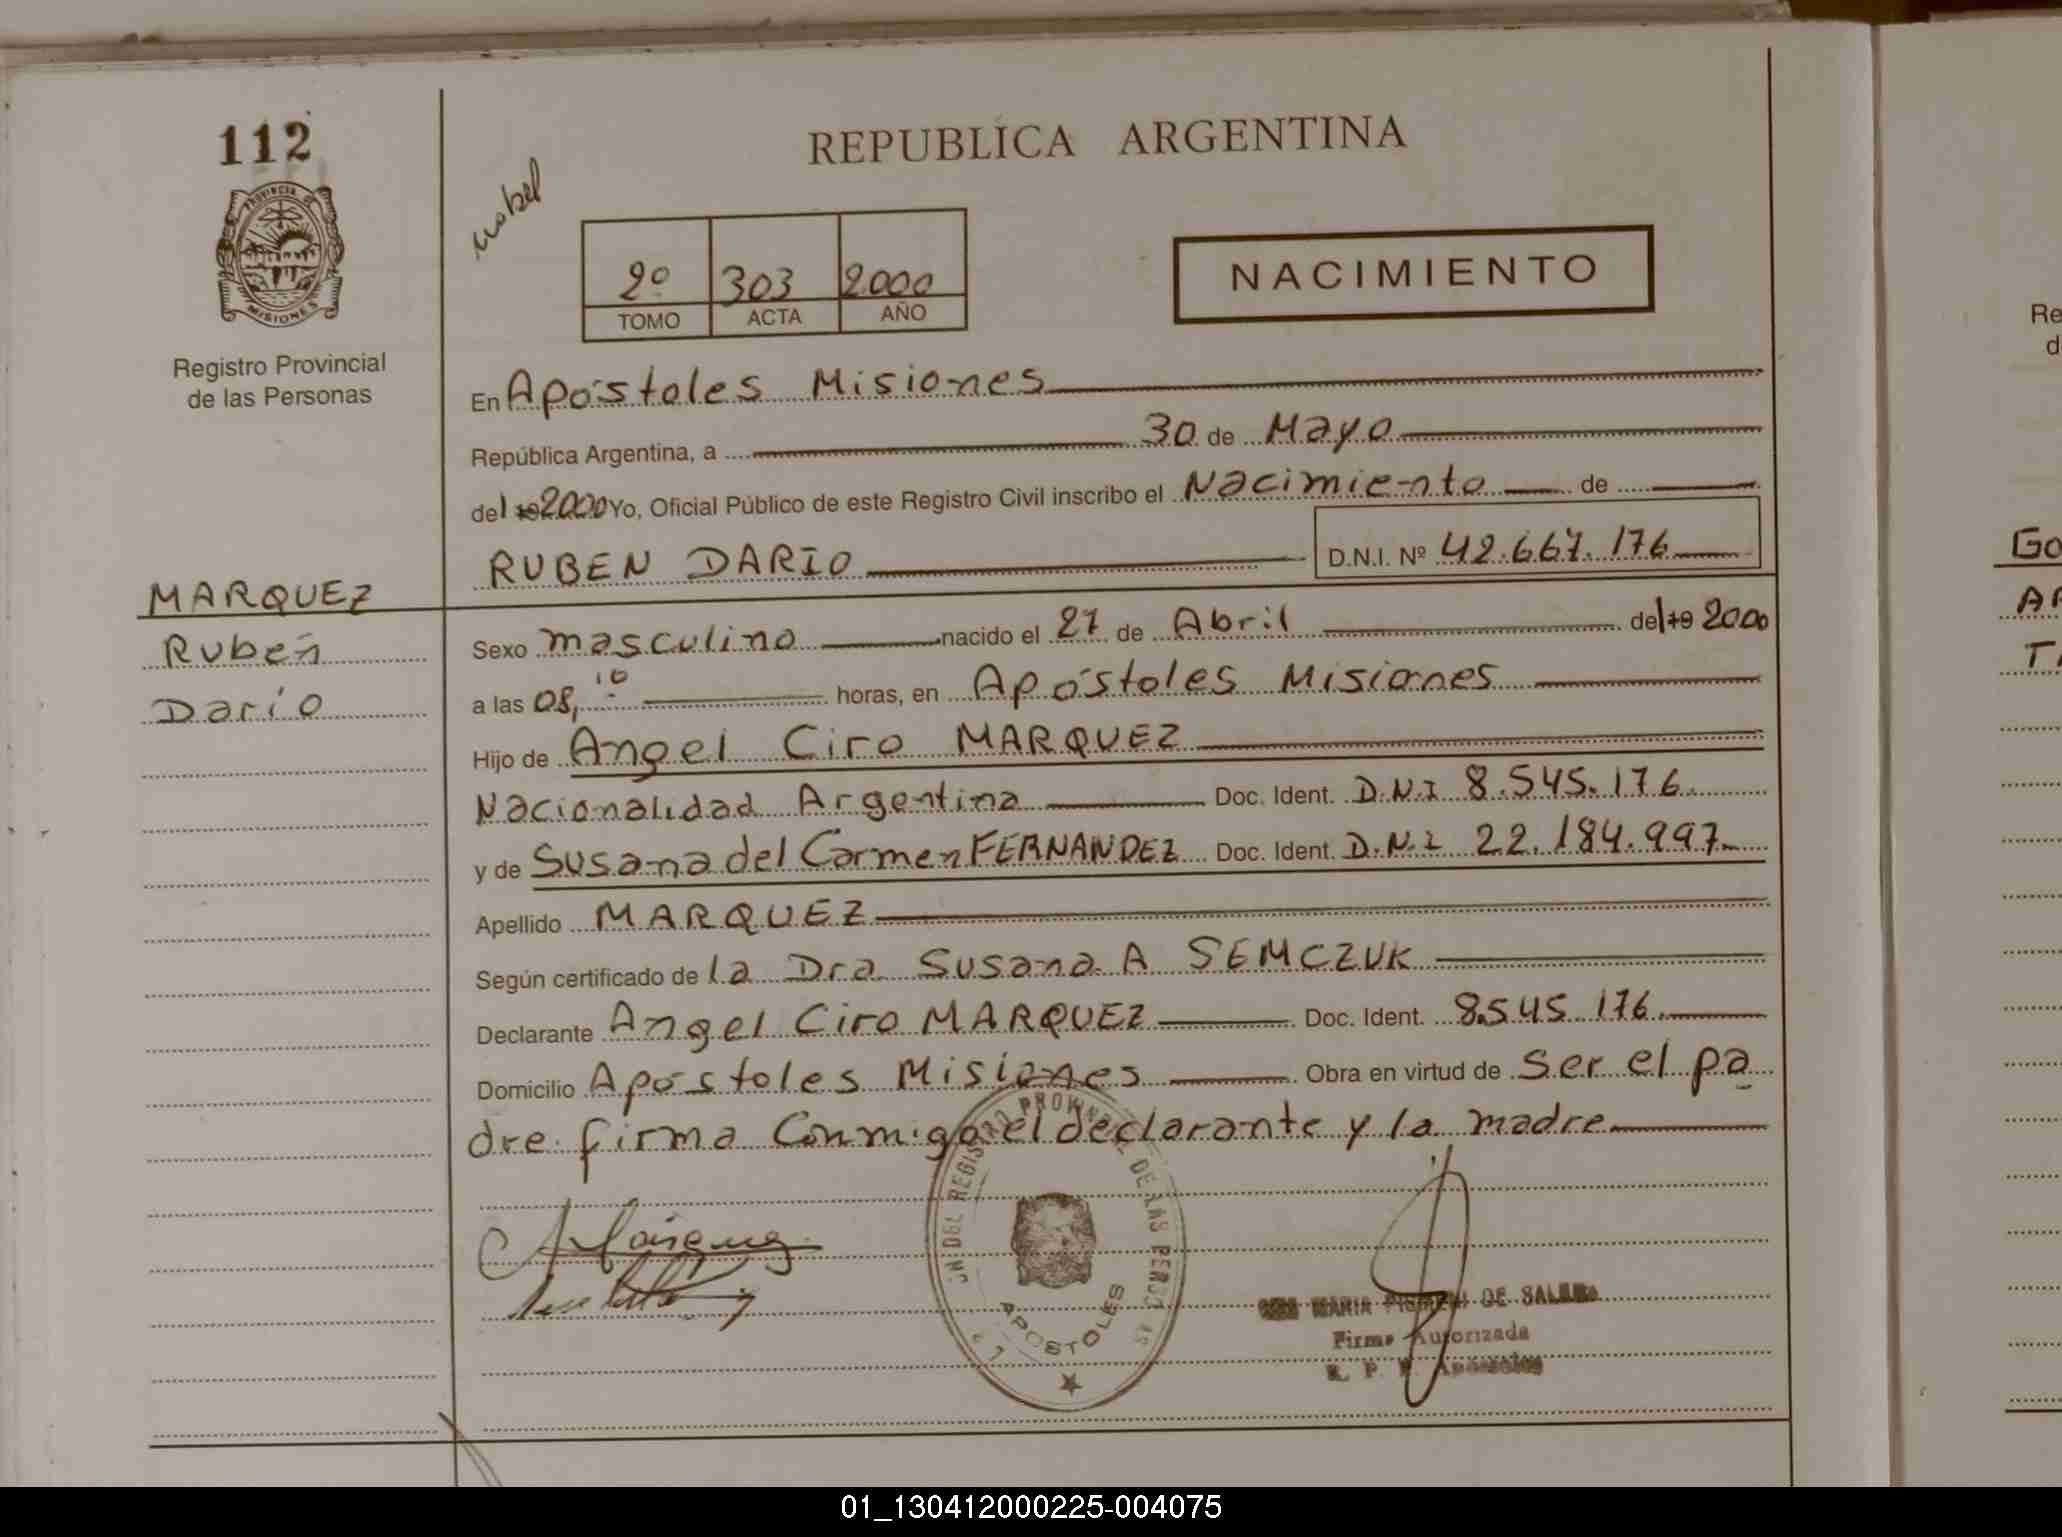 112
PROVINCIA DE
MISIONES
Registro Provincial
de las Personas
MARQUEZ
Rubén
Darío
REPUBLICA ARGENTINA
2º 303 2000
TOMO ACTA AÑO
NACIMIENTO
En Apóstoles Misiones
República Argentina, a 30 de Mayo
del 19 2000 Yo, Oficial Público de este Registro Civil inscribo el Nacimiento de
RUBEN DARIO D.N.I. Nº 42.667.176
Sexo masculino nacido el 27 de Abril del 19 2000
a las 08,10 horas, en Apóstoles Misiones
Hijo de Angel Ciro MARQUEZ
Nacionalidad Argentina Doc. Ident. D.N.I 8.545.176
y de Susana del Carmen FERNANDEZ Doc. Ident. D.N.I 22.184.997
Apellido MARQUEZ
Según certificado de la Dra Susana A SEMCZUK
Declarante Angel Ciro MARQUEZ Doc. Ident. 8.545.176
Domicilio Apóstoles Misiones Obra en virtud de ser el pa
dre. firma Conmigo el declarante y la madre
DEL REGISTRO PROVINCIAL DE LAS PERSONAS
APOSTOLES
MARIA DE
Firma Autorizada
R. P. P. Apóstoles
Go
Re
d
01_130412000225-004075